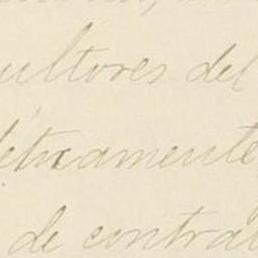 ultores del
éticamente
de contra